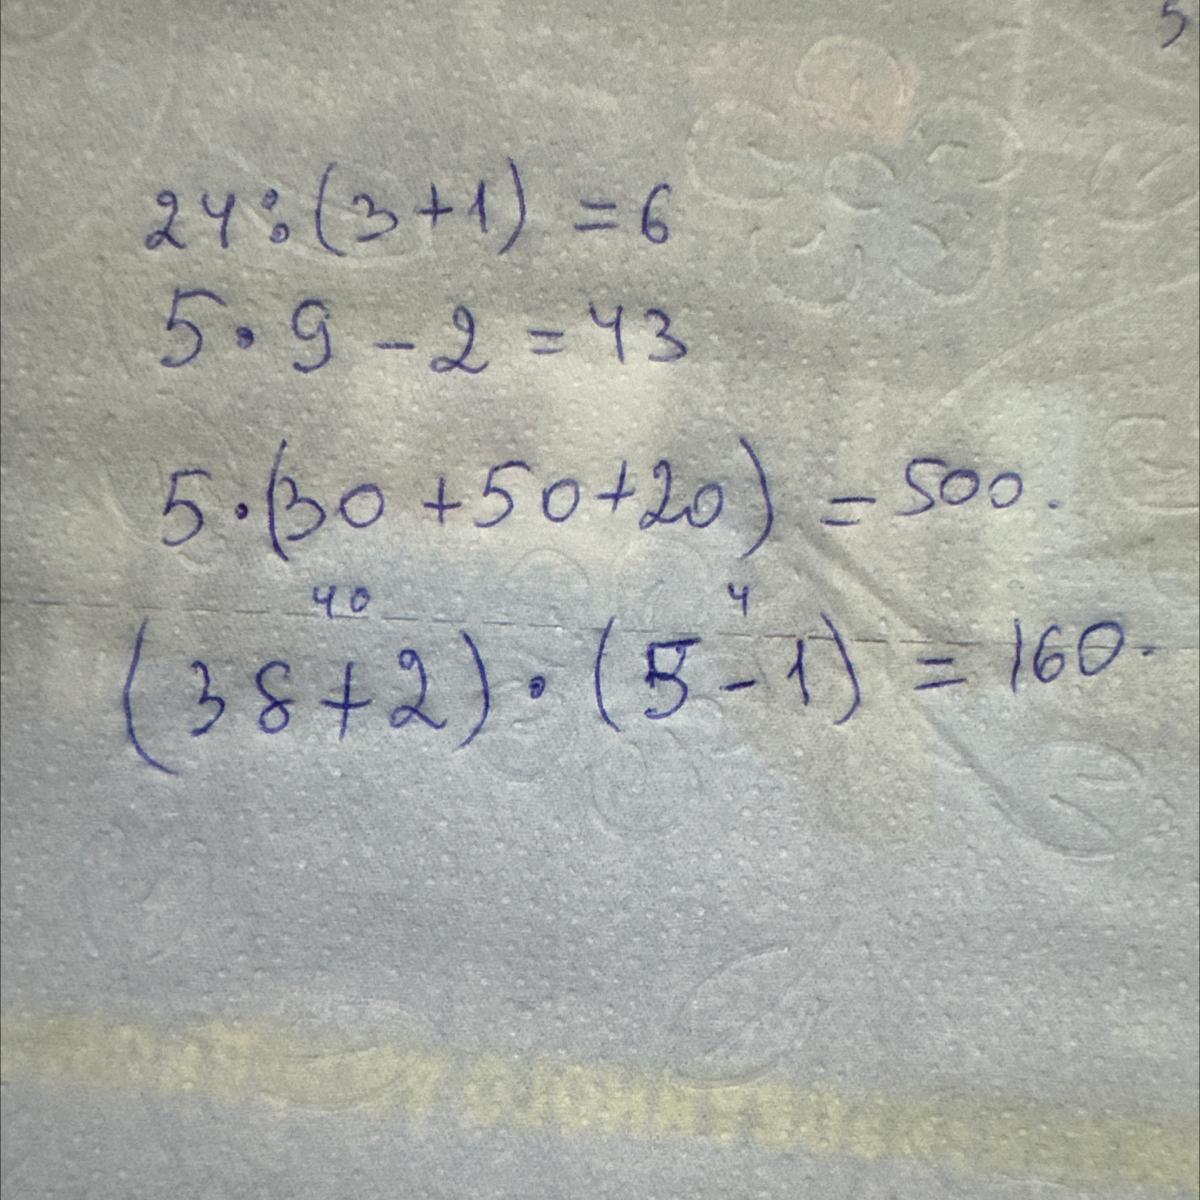 5
24:(3+1) = 6
5·9-2=43
5·(30+50+20) = 500.
40 4
(38+2)·(5-1) = 160.